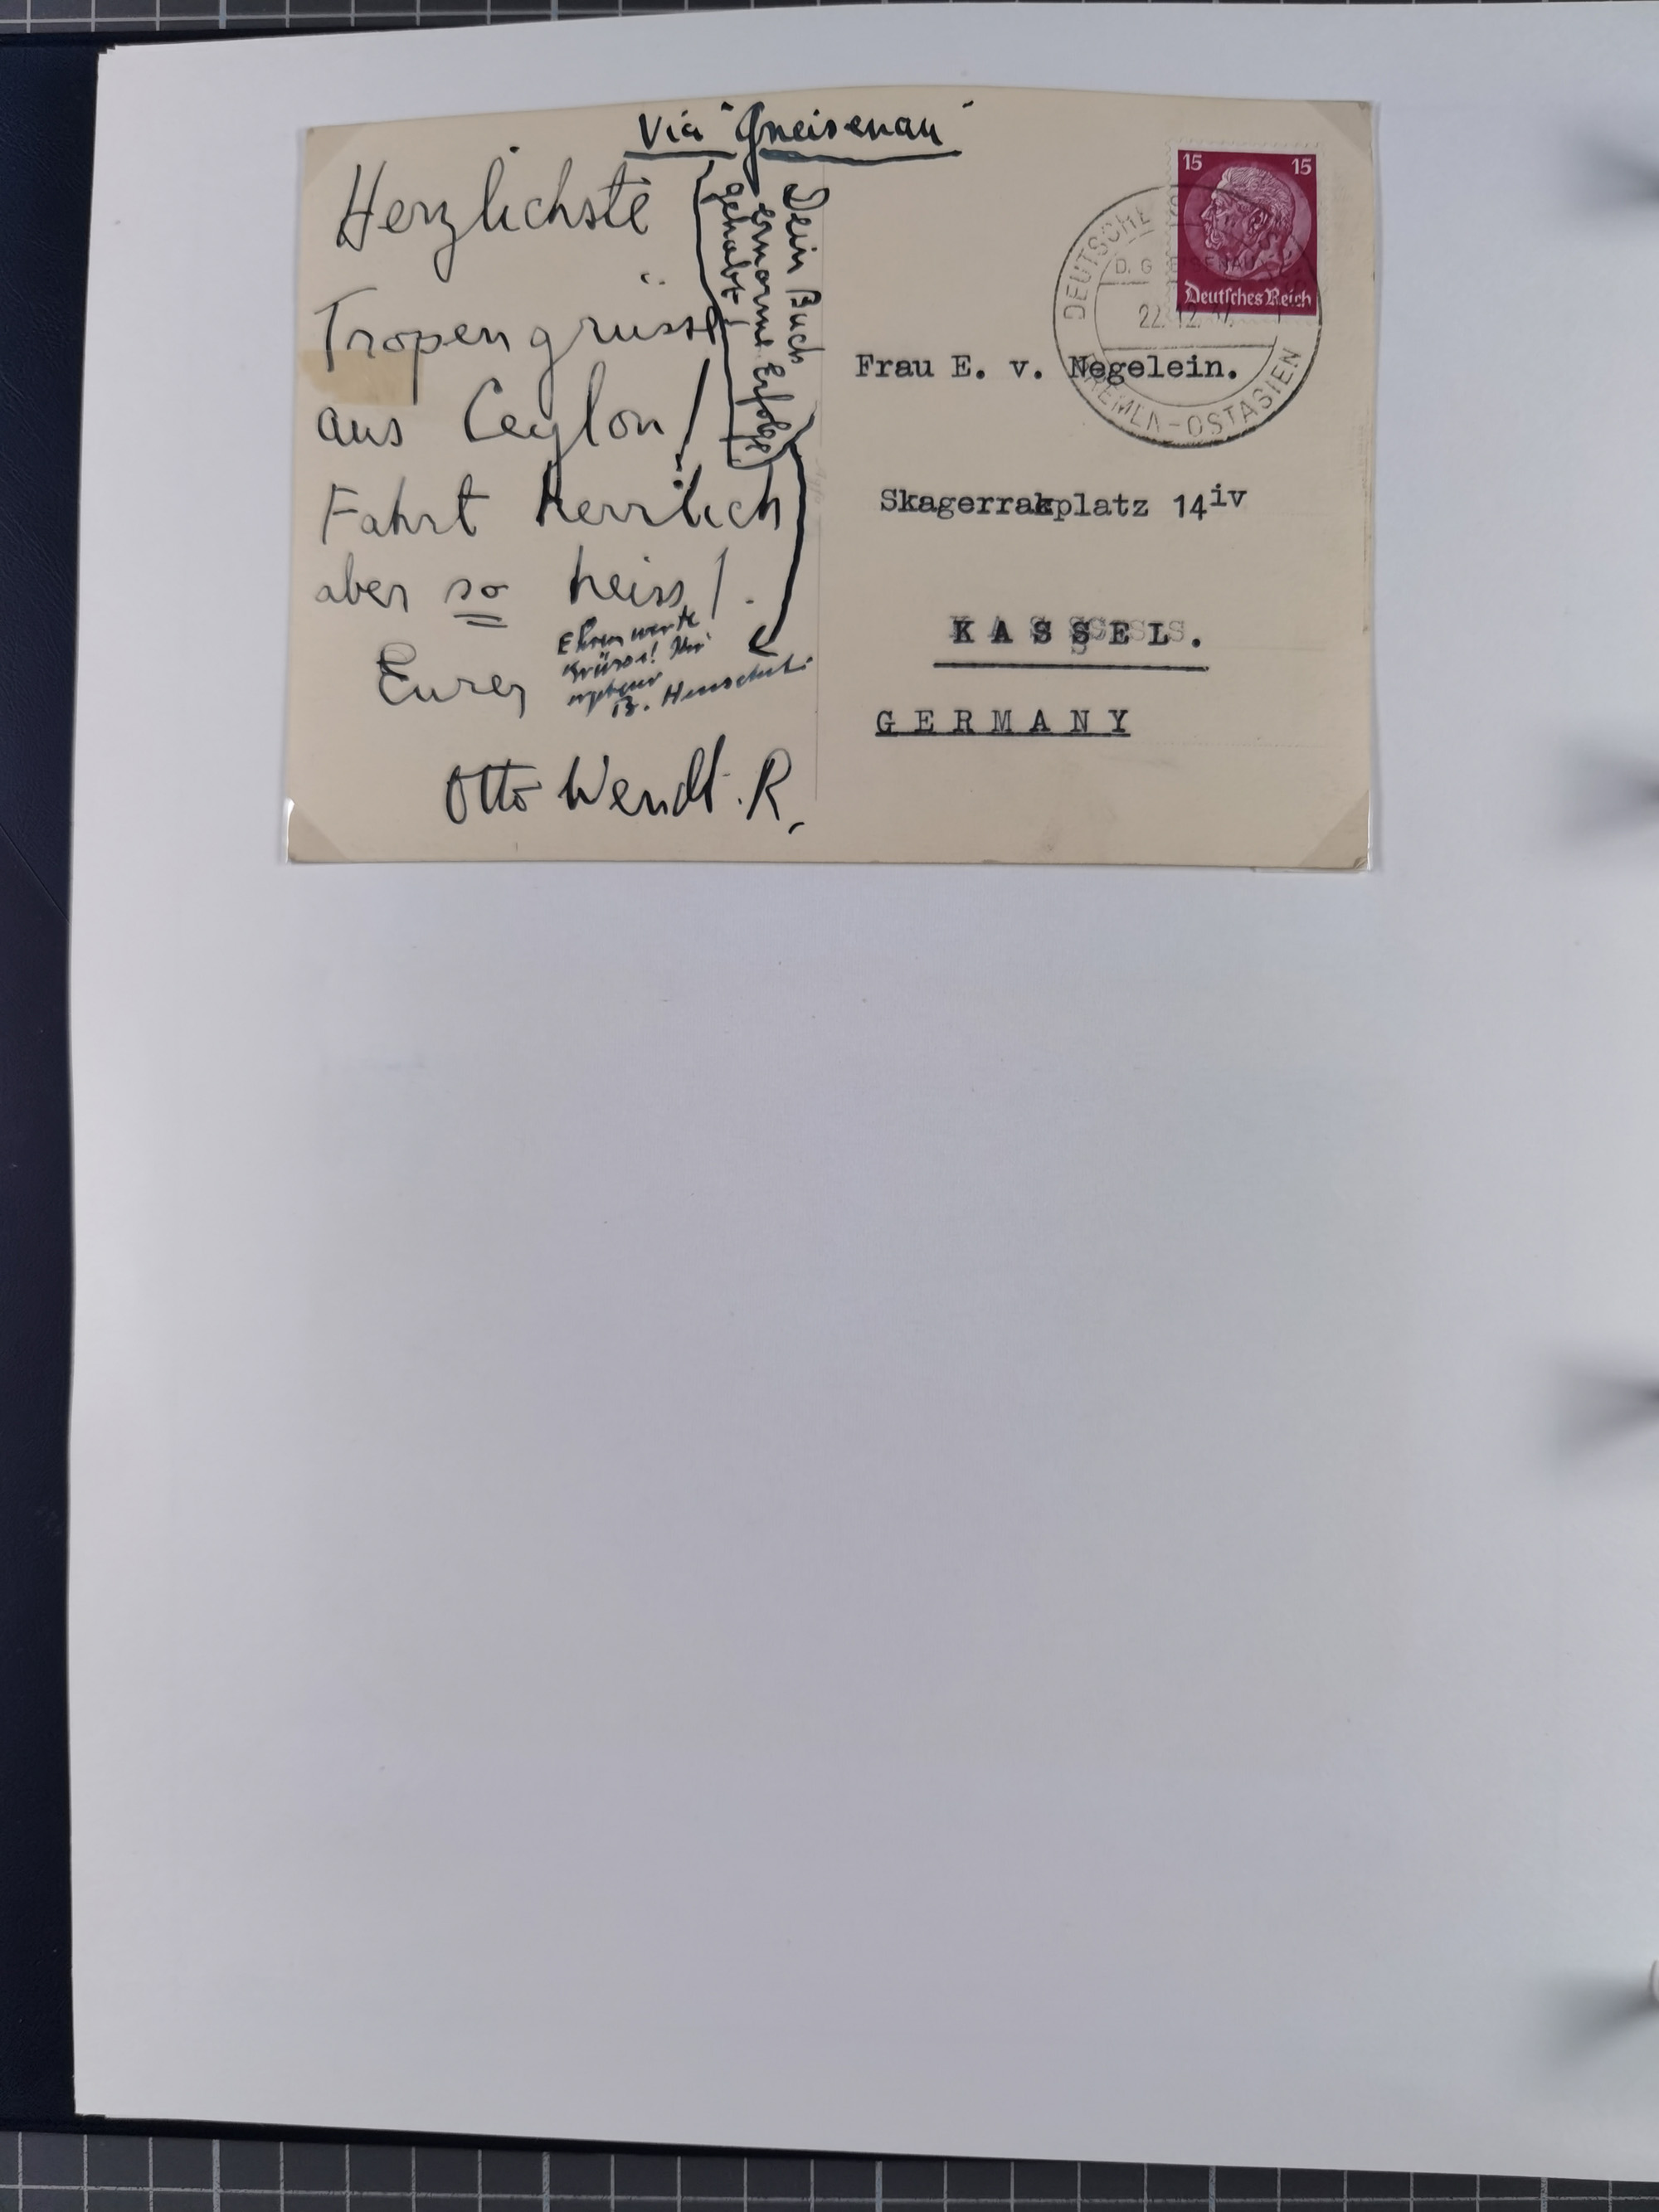 Via "Gneisenau"
Herzlichste
Tropengrüsse
aus Ceylon!
Fahrt herrlich
aber so heiss!
Eurer
Otto Wendt. R.
Dein Buch
enorme Erfolge
gehabt!
Ehrenwerte
Grüsse! Ihr
B. Henschel
15 15
Deutsches Reich
DEUTSCHE
D. GNEISENAU
22.12.37.
BREMEN-OSTASIEN
Frau E. v. Negelein.
Skagerrakplatz 14iv
KASSEL.
GERMANY